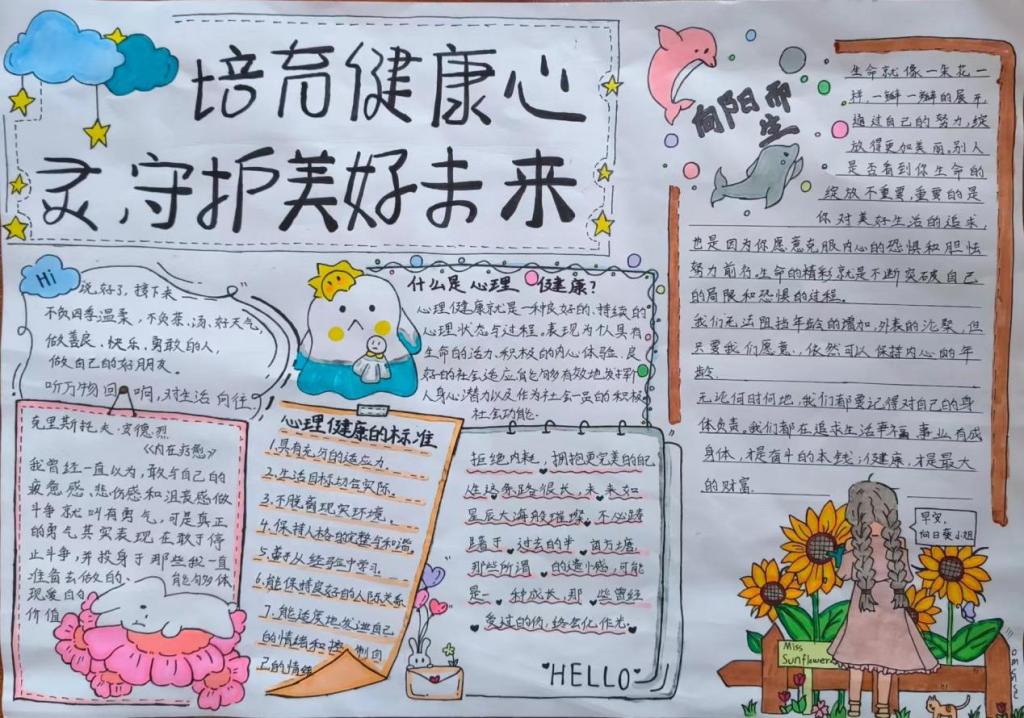 培育健康心
灵,守护美好未来
Hi
说好了,接下来
不负四季温柔,不负茶、汤、好天气,
做善良、快乐、勇敢的人,
做自己的好朋友。
听万物回响,对生活向往
克里斯托夫·安德烈
《内在疗愈》
我曾经一直以为,敢与自己的
疲惫感、悲伤感和沮丧感做
斗争就叫有勇气,可是真正
的勇气其实表现在敢于停
止斗争,并投身于那些我一直
准备去做的、能够体
现爱自的
价值
什么是心理健康?
心理健康就是一种良好的、持续的
心理状态与过程。表现为个人具有
生命的活力、积极的内心体验、良
好的社会适应能够有效地发挥个
人身心潜力以及作为社会一员的积极
社会功能.
心理健康的标准
1.具有充分的适应力.
2.生活目标切合实际。
3.不脱离现实环境.
4.保持人格的完整与和谐.
5.善于从经验中学习.
6.能保持良好的人际关系
7.能适度地发泄自己
的情绪和控制自
己的情绪
拒绝内耗,拥抱更完美的自己
人生这条路很长,未来如
星辰大海般璀璨,不必踌
躇于过去的半亩方塘.
那些所谓的遗憾,可能
是一种成长,那些曾经
受过的伤,终会化作光
HELLO
向阳而
生
生命就像一朵花一
样,一瓣一瓣的展示,
通过自己的努力,绽
放得更加美丽,别人
是否看到你生命的
绽放不重要,重要的是
你对美好生活的追求,
也是因为你愿意克服内心的恐惧和胆怯
努力前行。生命的精彩就是不断突破自己
的局限和恐惧的过程。
我们无法阻挡年龄的增加,外表的沧桑,但
只要我们愿意,依然可以保持内心的年
龄.
无论何时何地,我们都要记得对自己的身
体负责。我们都在追求生活幸福,事业有成
身体,才是奋斗的本钱;健康,才是最大
的财富.
早安,
向日葵小姐
Miss
Sunflower